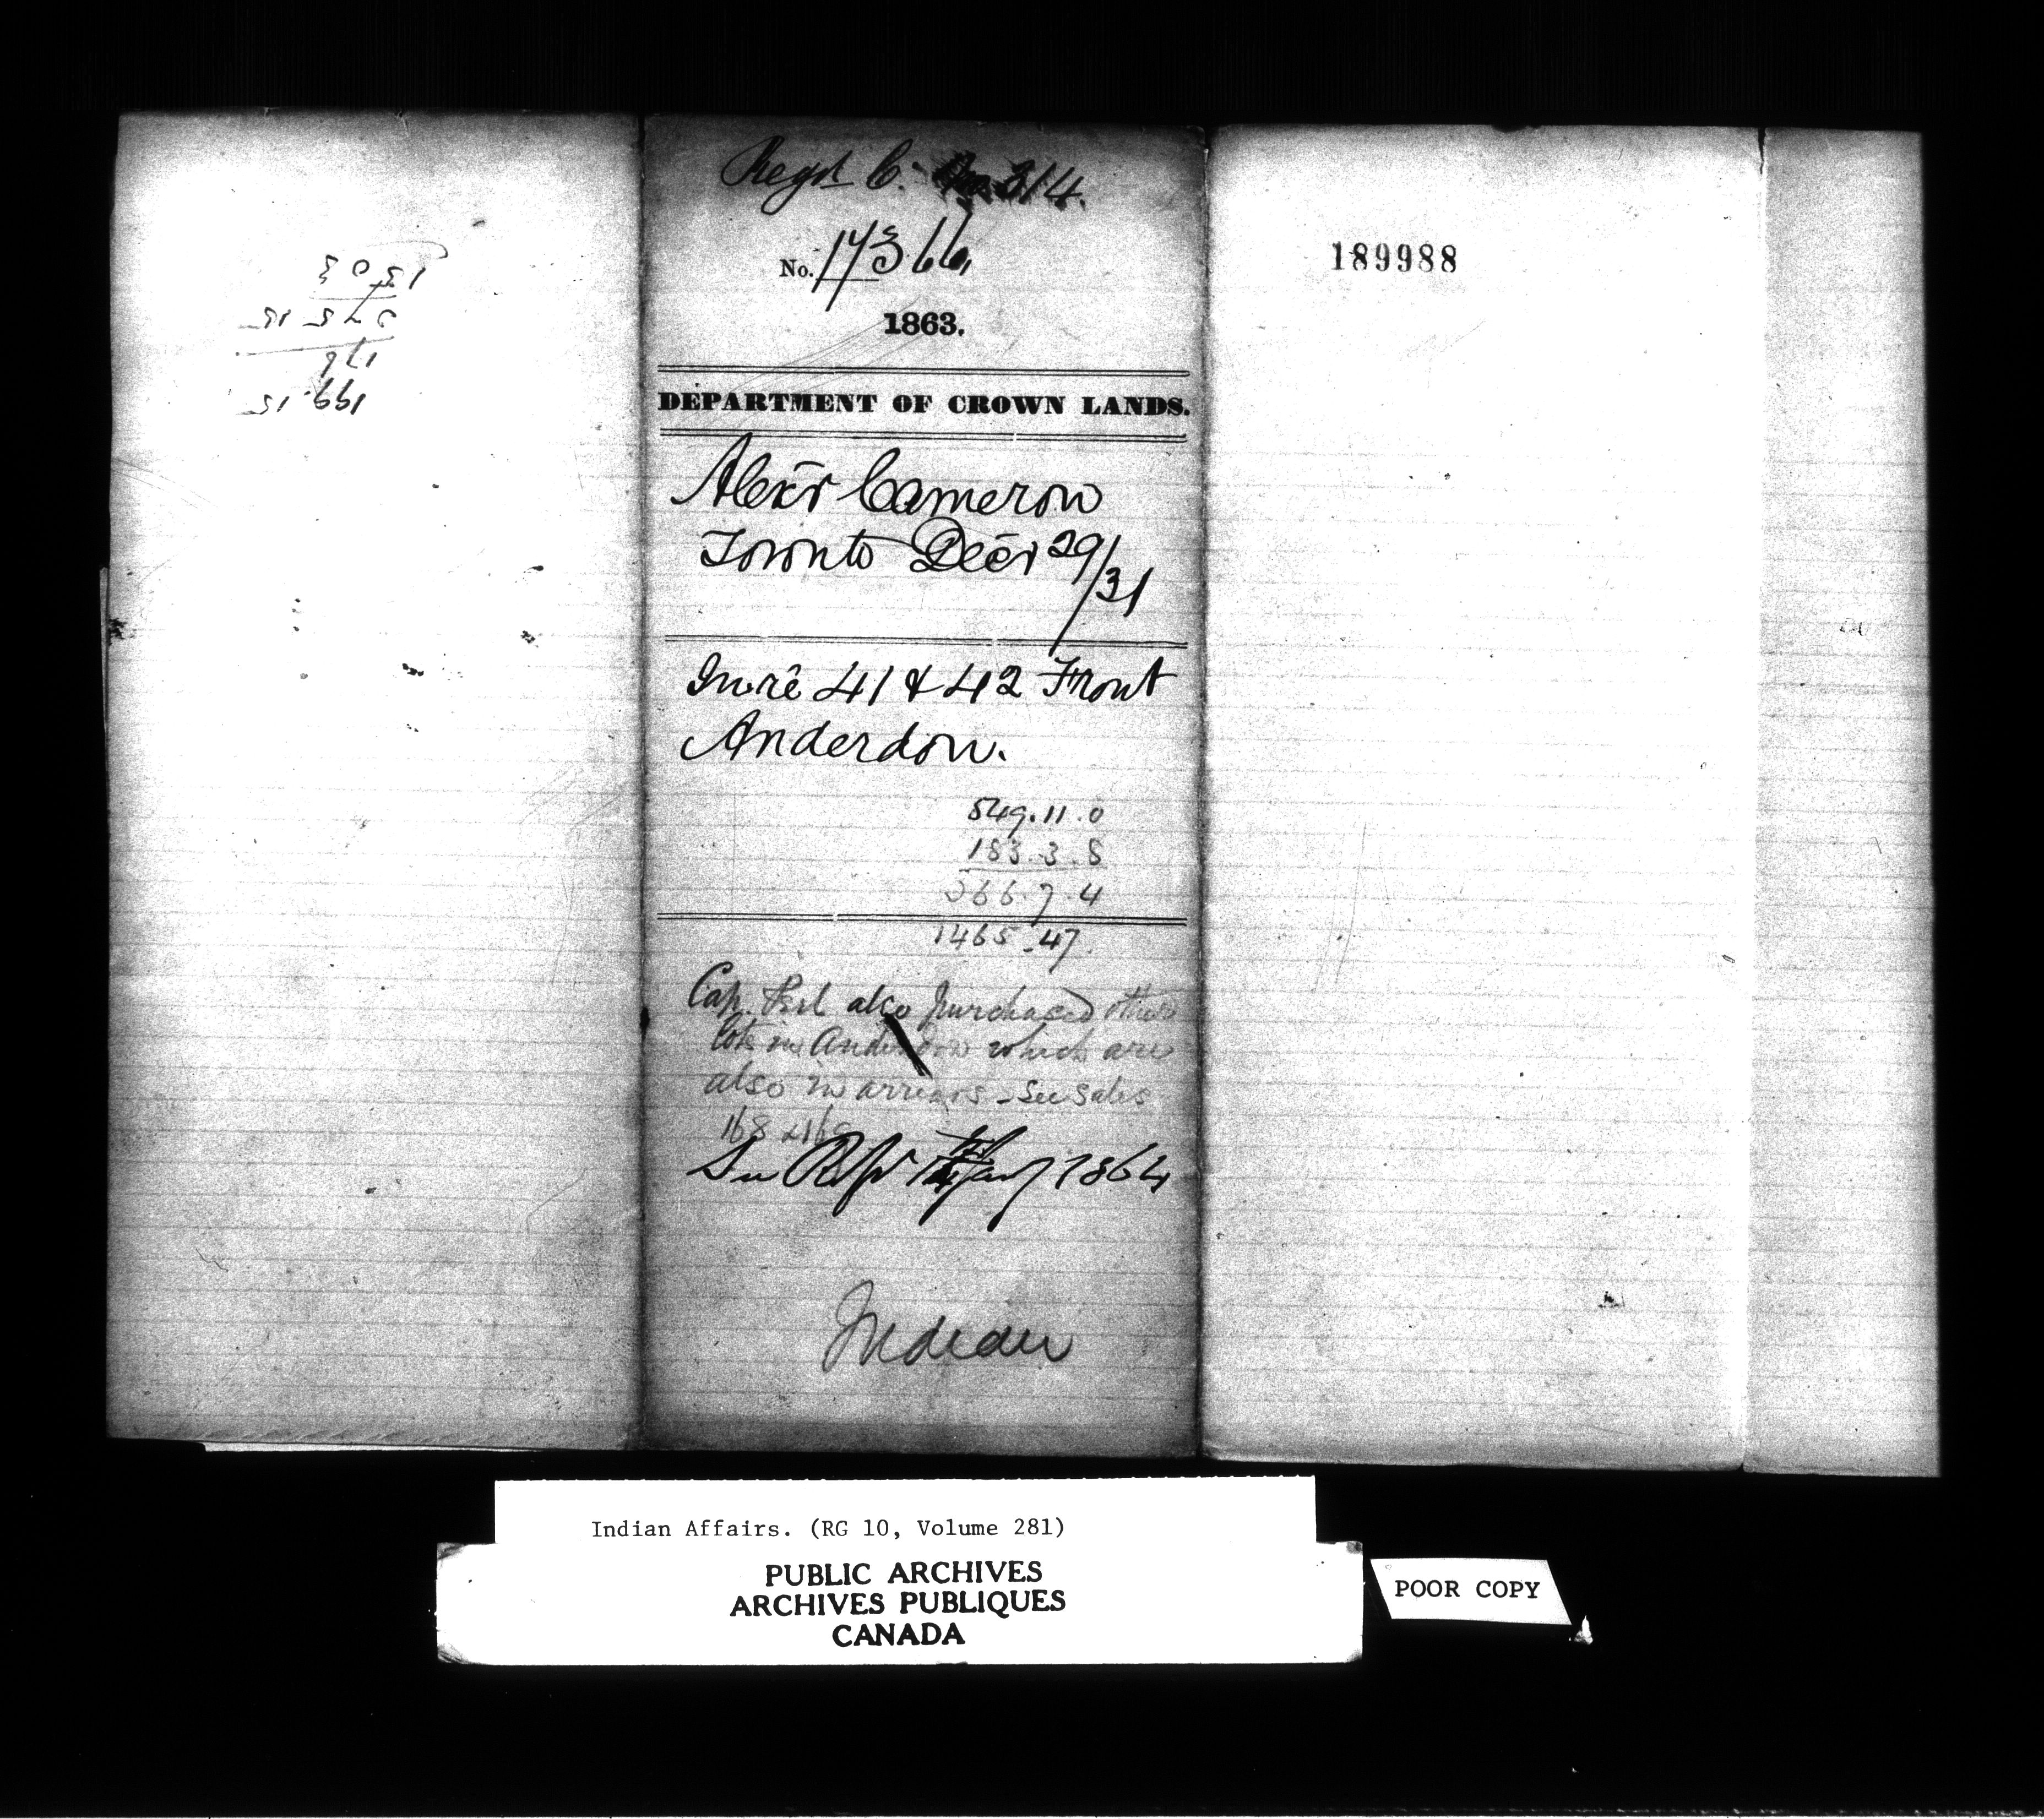 Regd C. 314.
No. 17366
1863.
DEPARTMENT OF CROWN LANDS.
Alexr Cameron
Toronto Decr 29/31
Inre 41 & 42 Front
Anderdon.
549.11.0
183.3.8
366.7.4
1465.47.
Cap. also purchased other
lots in Anderdon which are
also in arrears - See Sales
168 & 169
1864
Indian
189988
1503
176
199.15
Indian Affairs. (RG 10, Volume 281)
PUBLIC ARCHIVES
ARCHIVES PUBLIQUES
CANADA
POOR COPY